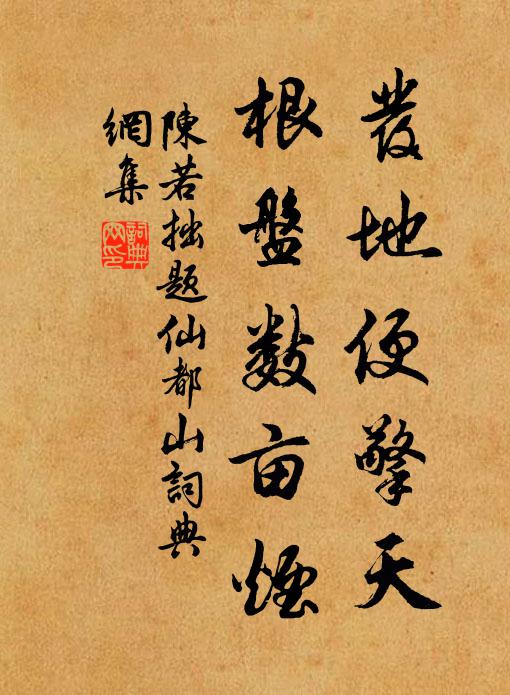 發地便擎天
根盤数亩煙
陳若拙题仙都山詞典
網集
詞典网印